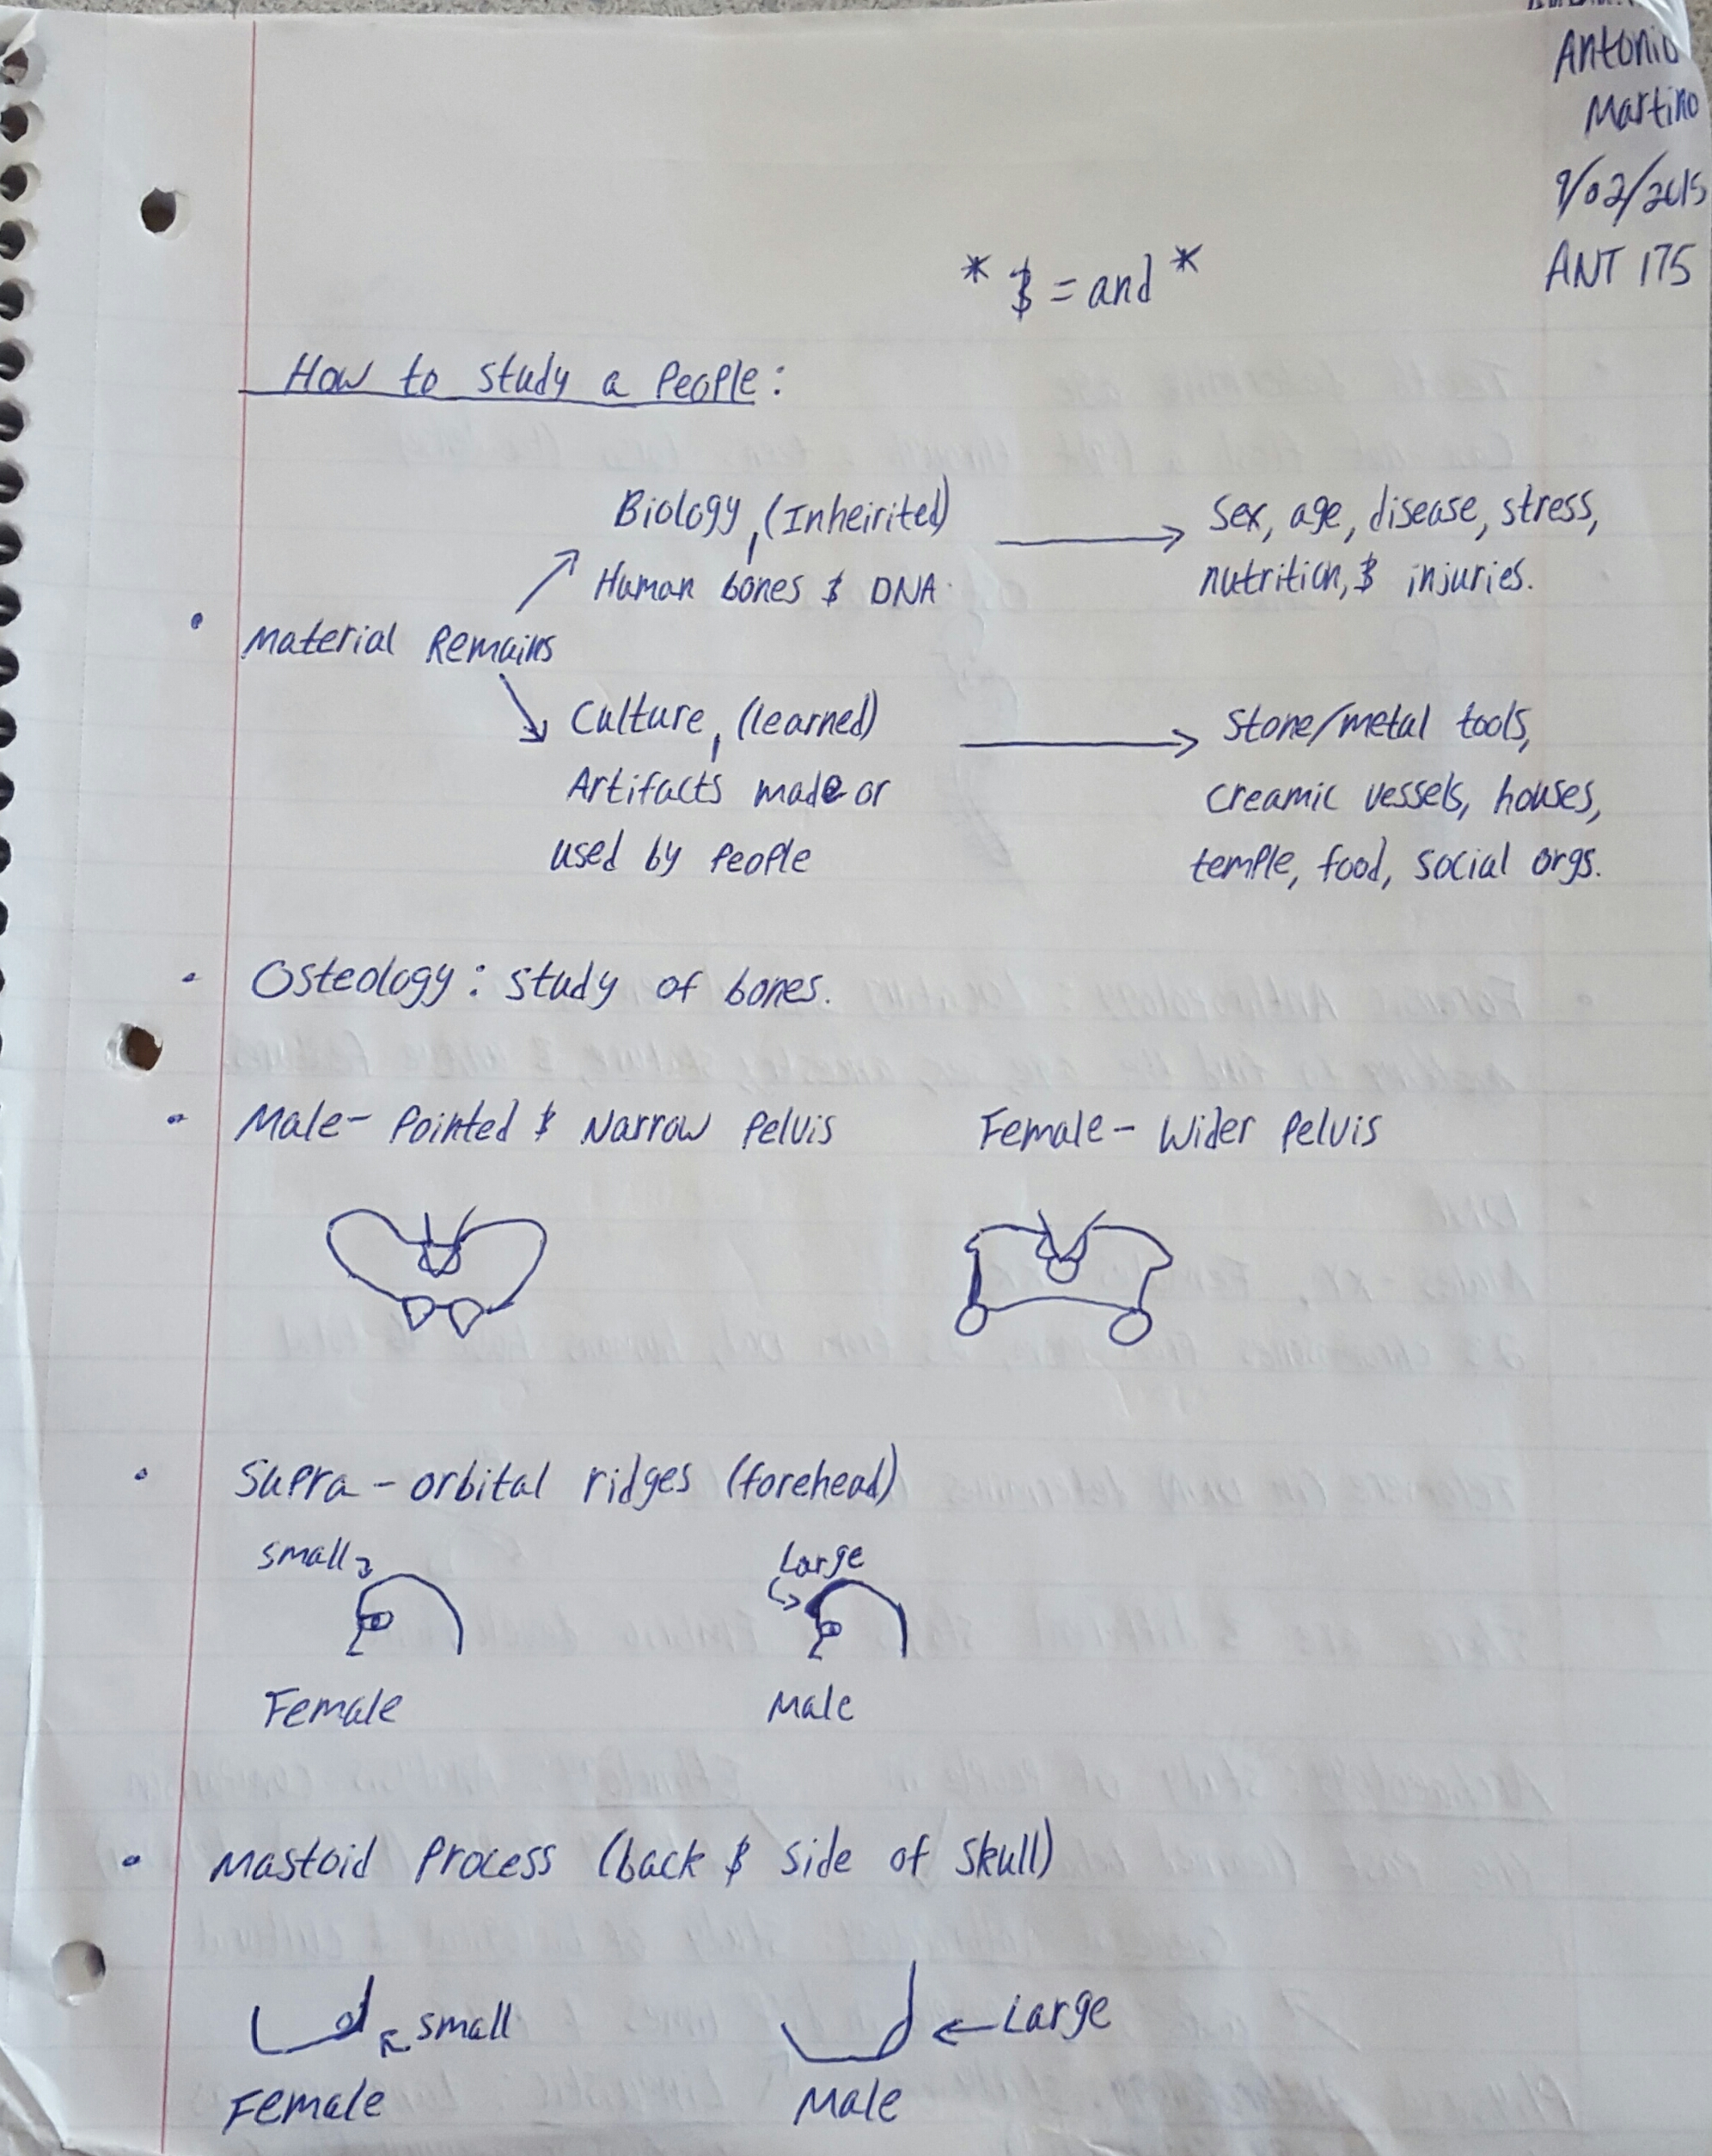 Antonio
Martino
9/02/2015
ANT 175
* $ = and *
How to study a People:
Biology, (Inheirited) → Sex, age, disease, stress,
Human bones $ DNA. nutrition, $ injuries.
• Material Remains
Culture, (learned) → Stone/metal tools,
Artifacts made or creamic vessels, houses,
used by People temple, food, social orgs.
• Osteology: study of bones.
• Male- Pointed $ Narrow Pelvis Female- Wider Pelvis
• Supra-orbital ridges (forehead)
small Large
Female Male
• Mastoid Process (back $ side of skull)
small Large
Female Male